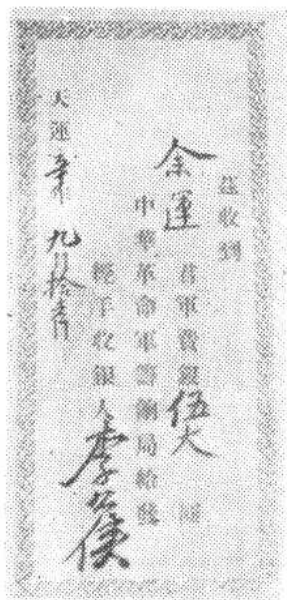 茲收到
余運君軍費銀伍大圓
中華革命軍籌餉局給發
經手收銀人李公俠
天運辛亥年九月拾壹日